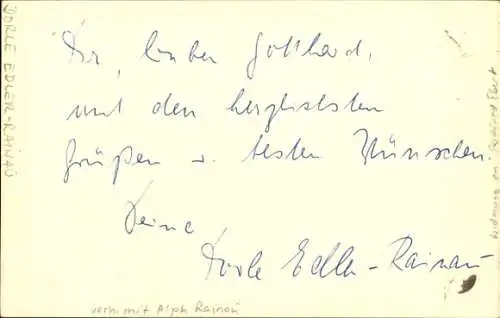 Dir, lieber Gotthard,
mit den herzlichsten
Grüßen u. besten Wünschen.
Deine
Dorle Edler-Rainau
DORLE EDLER-RAINAU
Widmung an Gotthard Ebert
verh. mit Alph Rainau